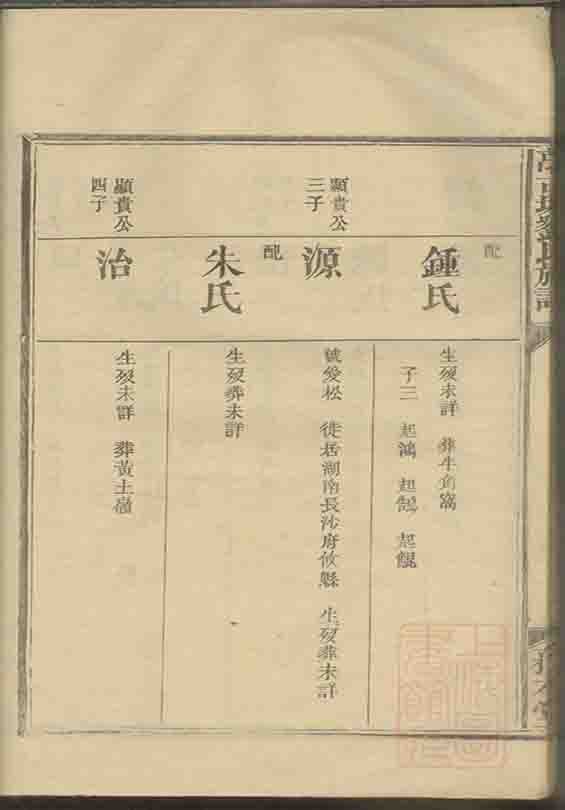 配
鍾氏
生歿未詳 葬牛角窩
子三 起鴻 起鵾 起鯤
顯貴公
三子
源
號愛松 徙居湖南長沙府攸縣 生歿葬未詳
配
朱氏
生歿葬未詳
顯貴公
四子
治
生歿未詳 葬黃土嶺